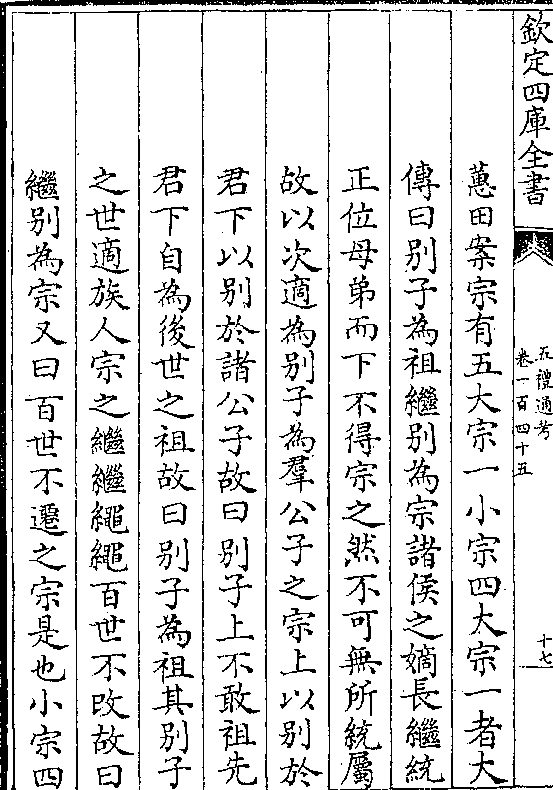 欽定四庫全書
五禮通考
卷一百四十五
十七
蕙田案宗有五大宗一小宗四大宗一者大
傳曰別子為祖繼別為宗諸侯之嫡長繼統
正位母弟而下不得宗之然不可無所統屬
故以次適為別子為羣公子之宗上以別於
君下以別於諸公子故曰別子上不敢祖先
君下自為後世之祖故曰別子為祖其別子
之世適族人宗之繼繼繩繩百世不改故曰
繼別為宗又曰百世不遷之宗是也小宗四